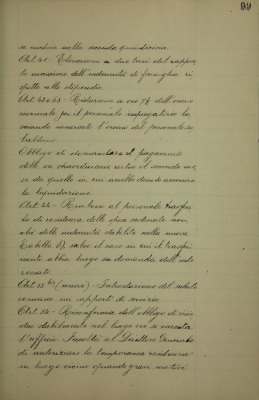 99
se nella seconda quindicina
Art. 41 - Elevazione a due terzi del rappor
to massimo dell'indennità di famiglia ri
spetto allo stipendio
Art. 42 e 63 - Riduzione a ore 7½ dell'orario
normale per il personale impiegatizio la
sciando invariato l'orario del personale su
balterno.
Obbligo di demandare il pagamento
delle ore straordinarie entro il mese
da quello in cui avviene
la liquidazione.
Art. 44 - Rimborso al personale trasferi
to di residenza delle
oltre dell'indennità stabilita nella nuova
Tabella D, salvo il caso in cui il trasferi
mento abbia luogo su domanda dell'inte
ressato.
Art. 53 bis (nuovo) - Introduzione del
in rapporti di servizio
Art. 54 - Riconferma dell'obbligo di risie
dere stabilmente nel luogo ove
l'ufficio. Facoltà al Direttore Generale
di autorizzare la temporanea residenza
in luogo vicino quando gravi motivi